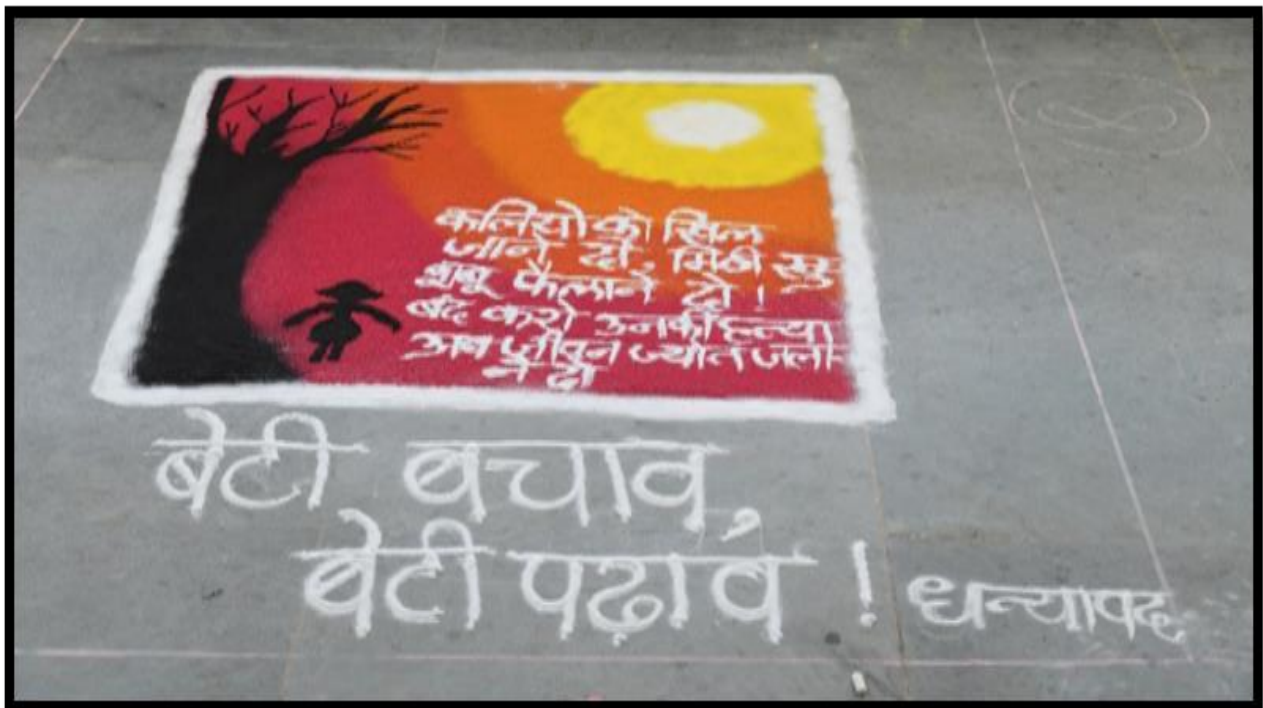 कलियो को खिल
जाने दो, मिठी खु
शबू फैलाने दो !
बंद करो उनकी हत्या
अब जीवन ज्योत जला-
ने दो
बेटी बचाव,
बेटी पढ़ावं ! धन्यापद